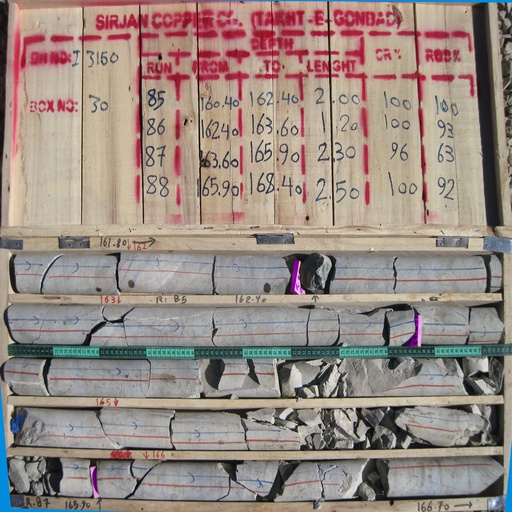 SIRJAN COPPER Co. (TAKHT-E-GONBAD)
DEPTH
DH NO: I 3150
RUN FROM TO LENGHT CR% RQD%
BOX NO: 30
85 160.40 162.40 2.00 100 100
86 162.40 163.60 1.20 100 93
87 163.60 165.90 2.30 96 63
88 165.90 168.40 2.50 100 92
161.80 →
162
163↓ R: 85 162.40 ↑
165↓
166
R.87 165.90 ↑ 166.70 →